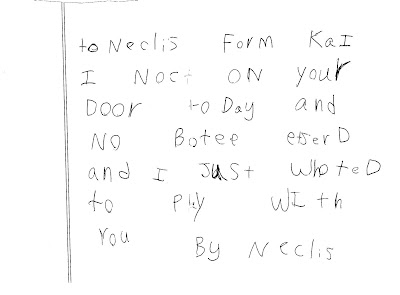 to Neclis Form Kai
I Noct ON your
Door to Day and
No Botee eserD
and I JuSt WhoteD
to Ply With
You
By Neclis